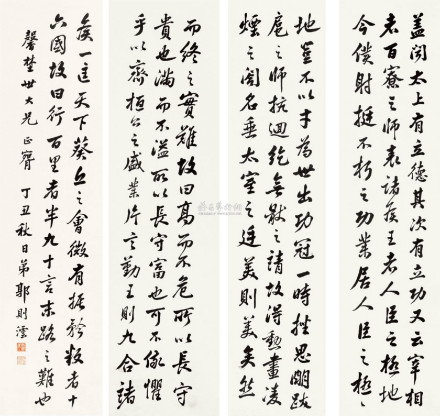 蓋闻太上有立德其次有立功又云宰相
者百寮之師表諸侯王者人臣之極地
今僕射挺不朽之功業居人臣之極
地豈不以才為世出功冠一時挫思明跋
扈之師抗迴紇無猒之請故得勳畫凌
煙之閣名垂太室之廷美則美矣然
而終之實難故曰高而不危所以長守
貴也滿而不溢所以長守富也可不儆懼
乎以齊桓公之盛業片言勤王則九合諸
侯一匡天下葵丘之會微有振矜叛者十
六國故曰行百里者半九十言末路之難也
馨世大兄正 丁丑秋日弟郭則澐